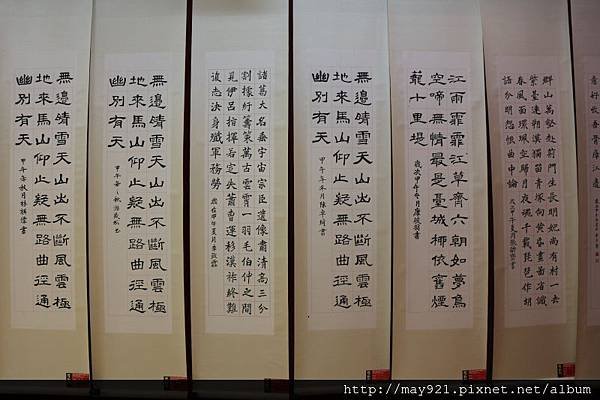 群山萬壑赴荊門生長明妃尚有村一去
紫臺連朔漠獨留青塚向黃昏畫圖省識
春風面環珮空歸月夜魂千載琵琶作胡
語分明怨恨曲中論
江雨霏霏江草齊六朝如夢鳥
空啼無情最是臺城柳依舊煙
籠十里堤
無邊晴雪天山出不斷風雲極
地來馬山仰止疑無路曲徑通
幽別有天
諸葛大名垂宇宙宗臣遺像肅清高三分
割據紆籌策萬古雲霄一羽毛伯仲之間
見伊呂指揮若定失蕭曹運移漢祚終難
復志決身殲軍務勞
無邊晴雪天山出不斷風雲極
地來馬山仰止疑無路曲徑通
幽別有天
無邊晴雪天山出不斷風雲極
地來馬山仰止疑無路曲徑通
幽別有天
http://may921.pixnet.net/album